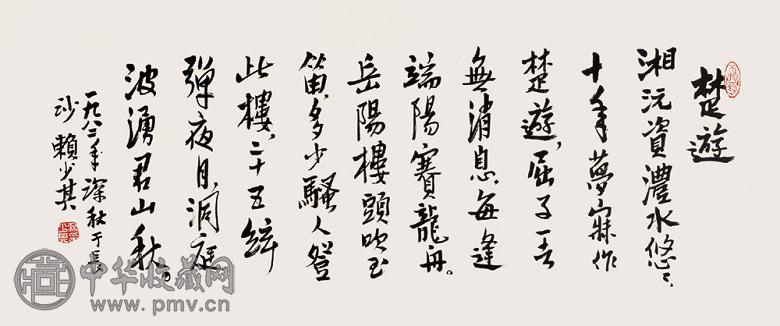 楚遊
湘沅資澧水悠々、
十年夢寐作
楚遊，屈子一去
無消息，每逢
端陽賽龍舟。
岳陽樓頭吹玉
笛，多少騷人登
此樓，二十五絃
彈夜月，洞庭
波湧君山秋。
一九八二年深秋于長
沙 賴少其
中华收藏网
www.pmv.cn